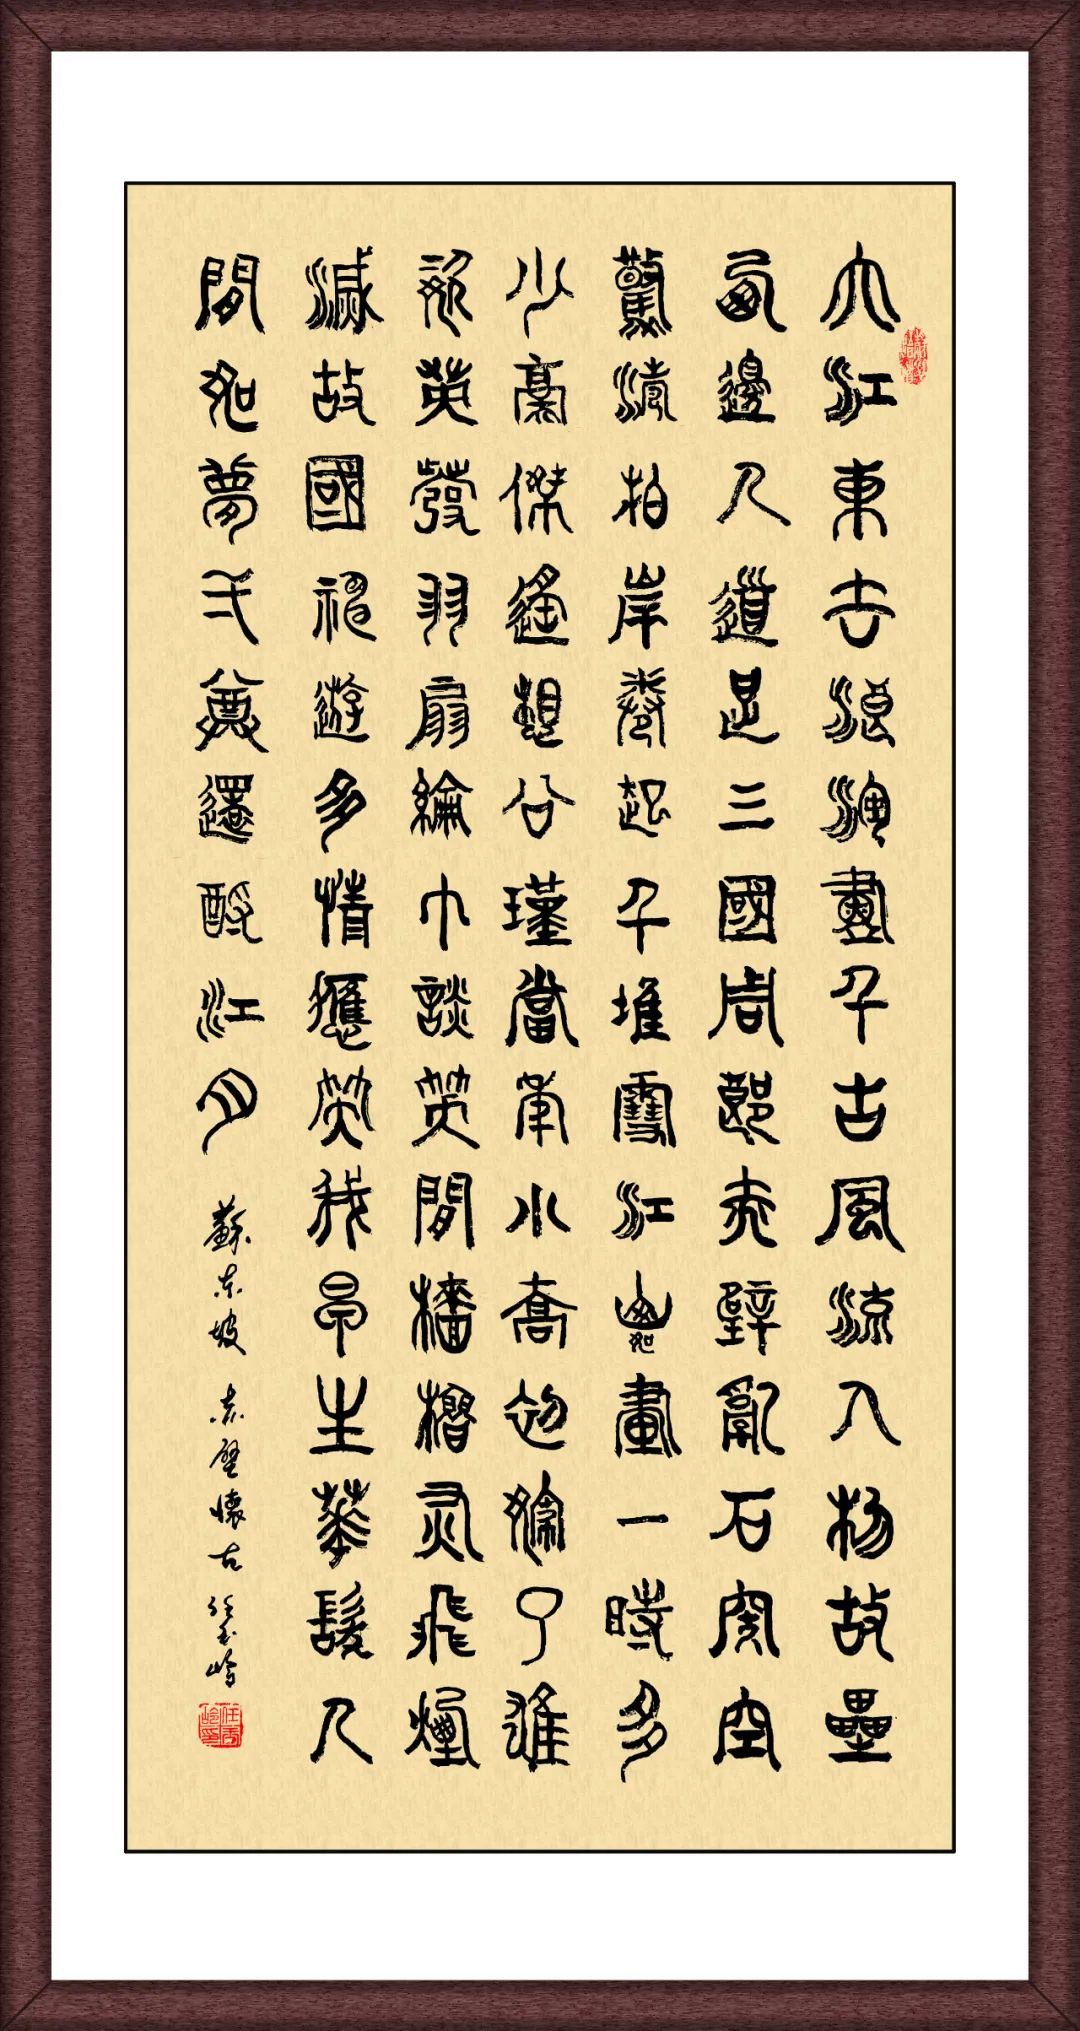 大江東去浪淘盡千古風流人物故壘
西邊人道是三國周郎赤壁亂石穿空
驚濤拍岸卷起千堆雪江山如畫一時多
少豪傑遙想公瑾當年小喬初嫁了雄
姿英發羽扇綸巾談笑間檣櫓灰飛煙
滅故國神遊多情應笑我早生華髮人
間如夢弌尊還酹江月
蘇东坡 赤壁懷古 任秀岭